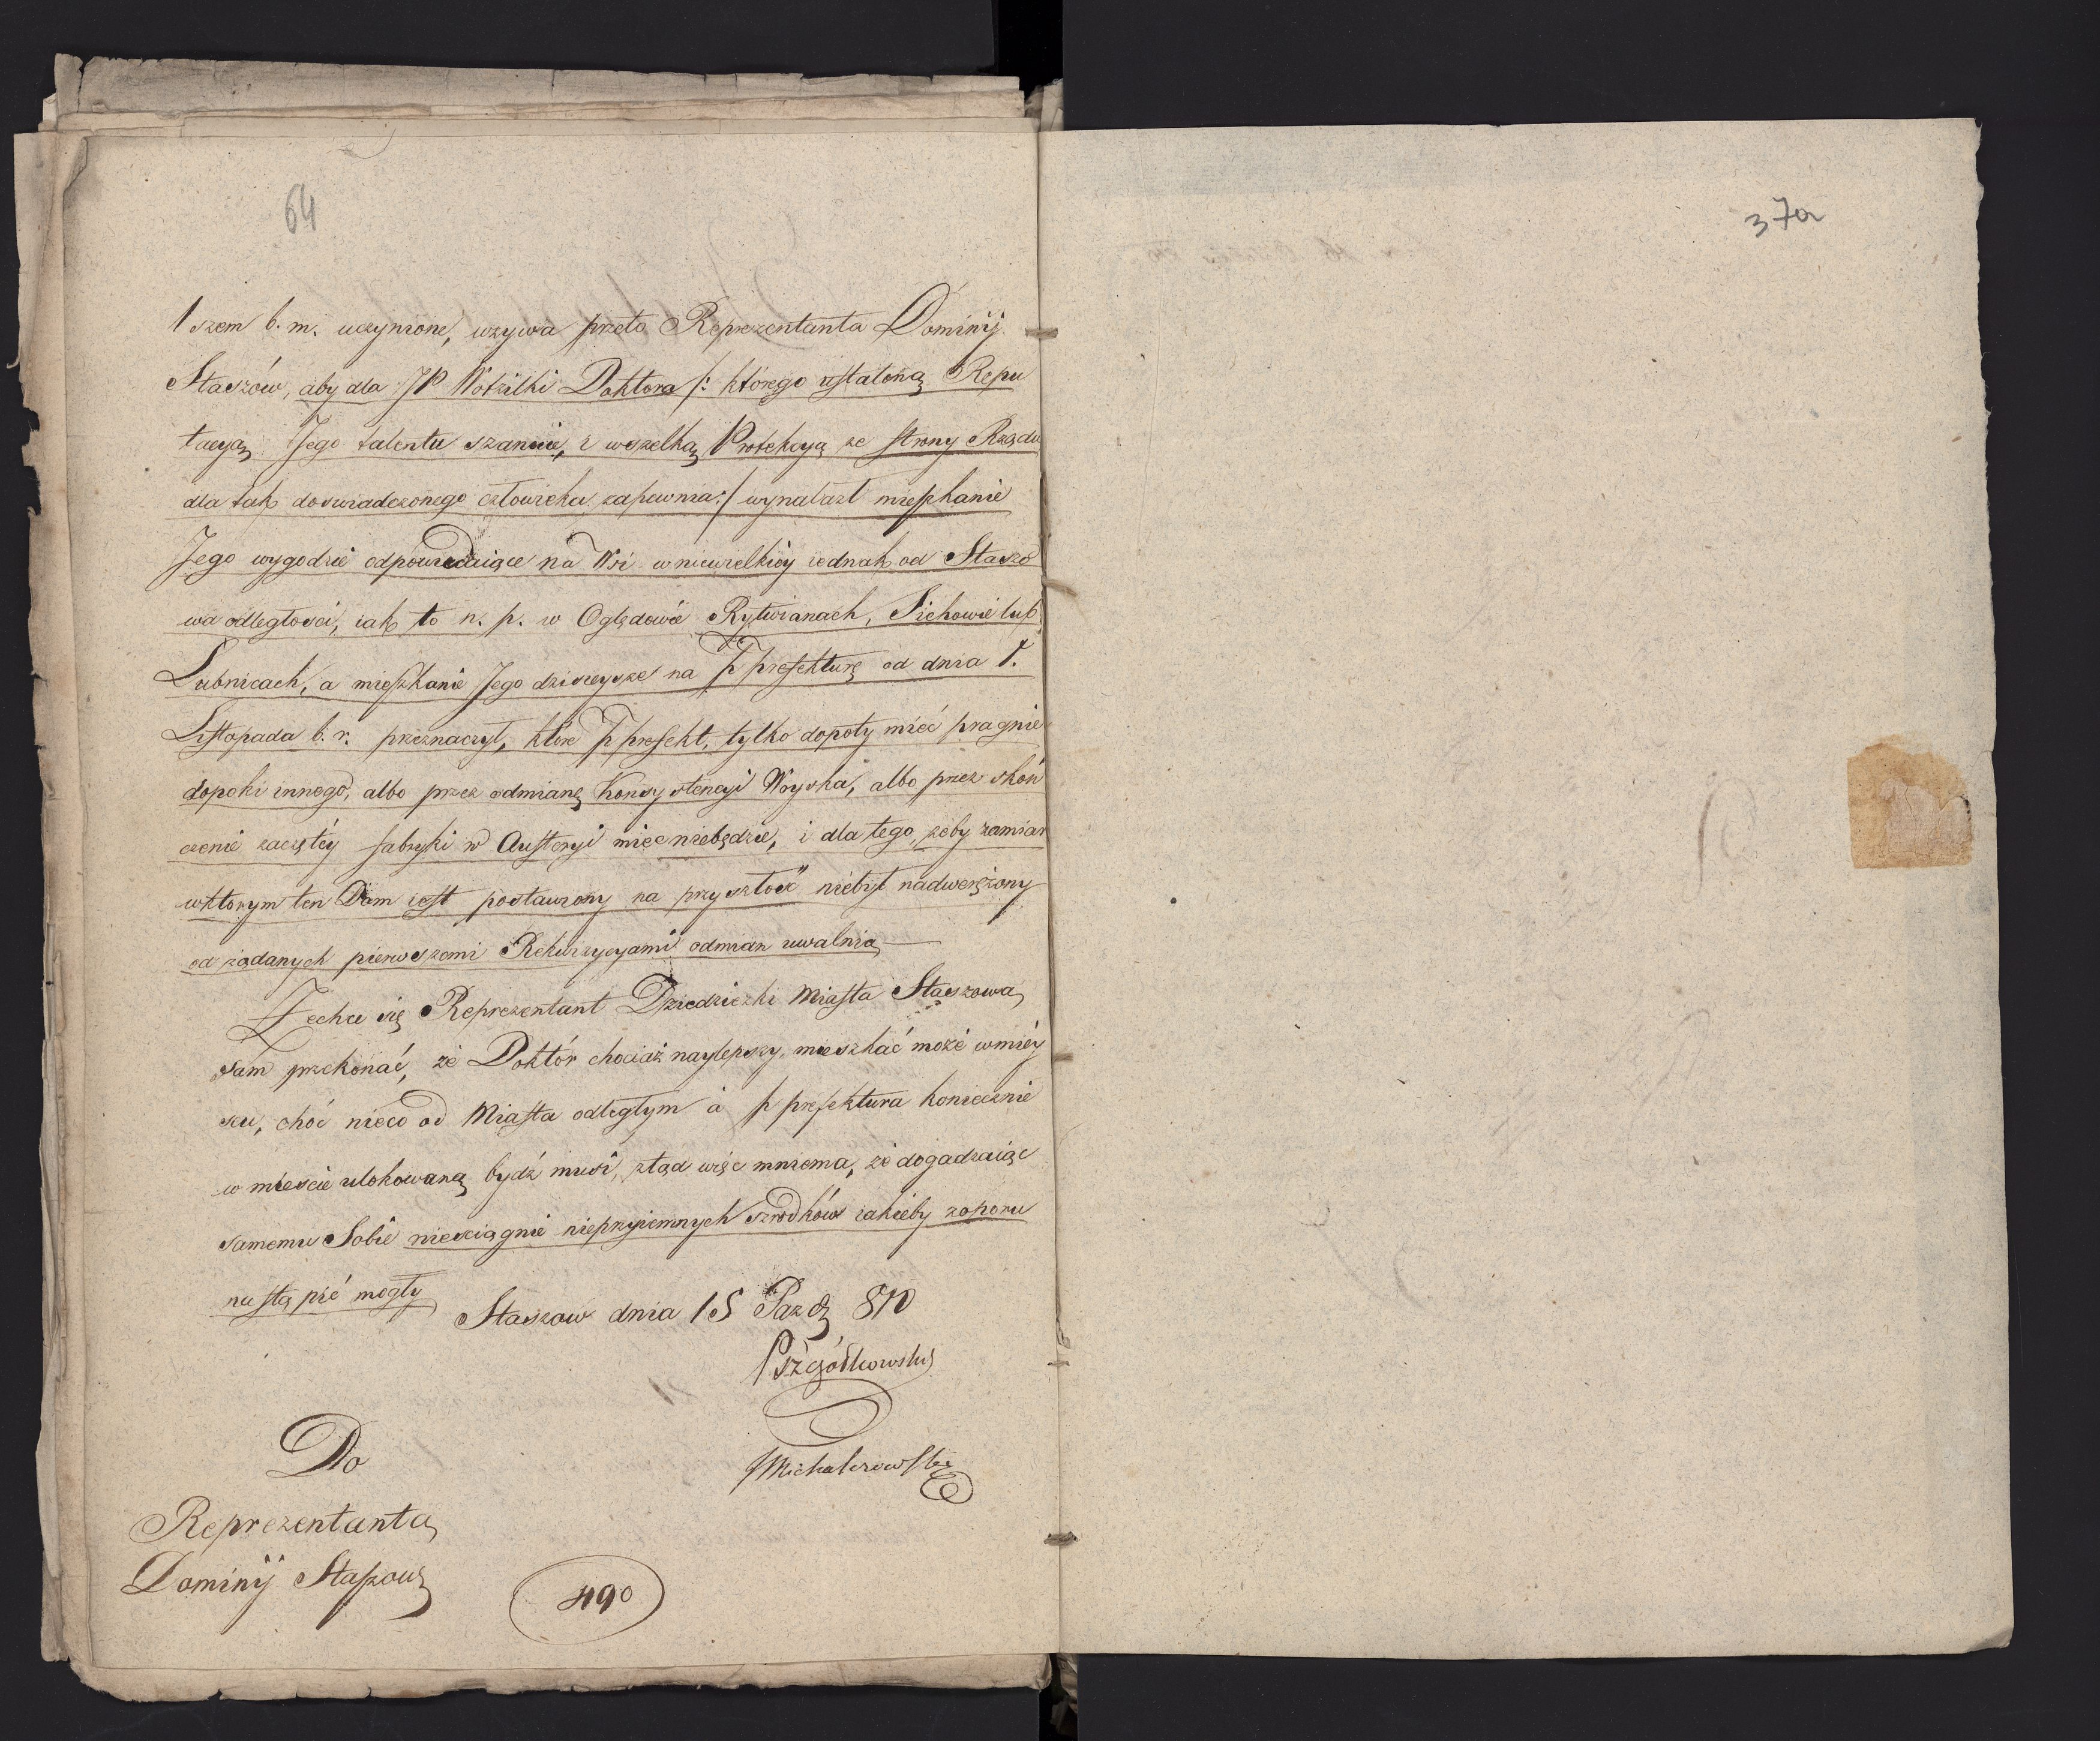 64
37a
1szem b. m. uczynione, wzywa przeto Reprezentanta Dominij
Staszów, aby dla JP Wotzilki Doktora /: którego ustaloną Repu
tacyą Jego talentu szanuie, i wszelką Protekcyą ze strony Rządu
dla tak doswiadczonego człowieka zapewnia :/ wynalazł mieszkanie
Jego wygodzie odpowiadaiące na Wsi w niewielkiey iednak od Staszo
wa odległosci, iak to n. p. w Oględowie Rytwianach, Sichowie lub
Łubnicach, a mieszkanie Jego dzisieysze na Pprefekturę od dnia 1.
Listopada b. r. przeznaczył, które Pprefekt, tylko dopoty mieć pragnie
dopoki innego, albo przez odmianę Konsystencyi Woyska, albo przez skoń
czenie zaczętéy fabryki w Austeryi miec niebędzie, i dla tego, żeby zamiar
wktorym ten Dom iest postawiony na przyszłość niebył nadwerężony
od żądanych pierwszemi Rekwizycyami odmian uwalnia
Zechce się Reprezentant Dziedziczki Miasta Staszowa
sam przekonać, że Doktór chociaż naylepszy, mieszkać może wmiéy
scu, choć nieco od Miasta odległym a pprefektura koniecznie
w miescie ulokowaną bydź musi, ztąd więc mniema, że dogadzaiąc
samemu Sobie niesciągnie nieprzyiemnych srzodków iakieby zoporu
nastąpić mogły
Staszow dnia 15 Pazdz 810
Michalczowski
Do
Reprezentanta
Dominij Staszow
490